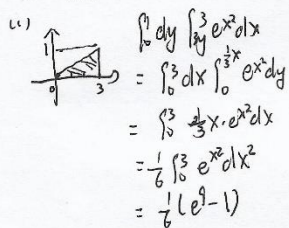 (1) ∫₀¹dy ∫_{3y}^3 e^{x²}dx
1
0
3
= ∫₀³dx ∫₀^{⅓x} e^{x²}dy
= ∫₀³ ⅓x·e^{x²}dx
= ⅙ ∫₀³ e^{x²}dx²
= ⅙(e⁹-1)